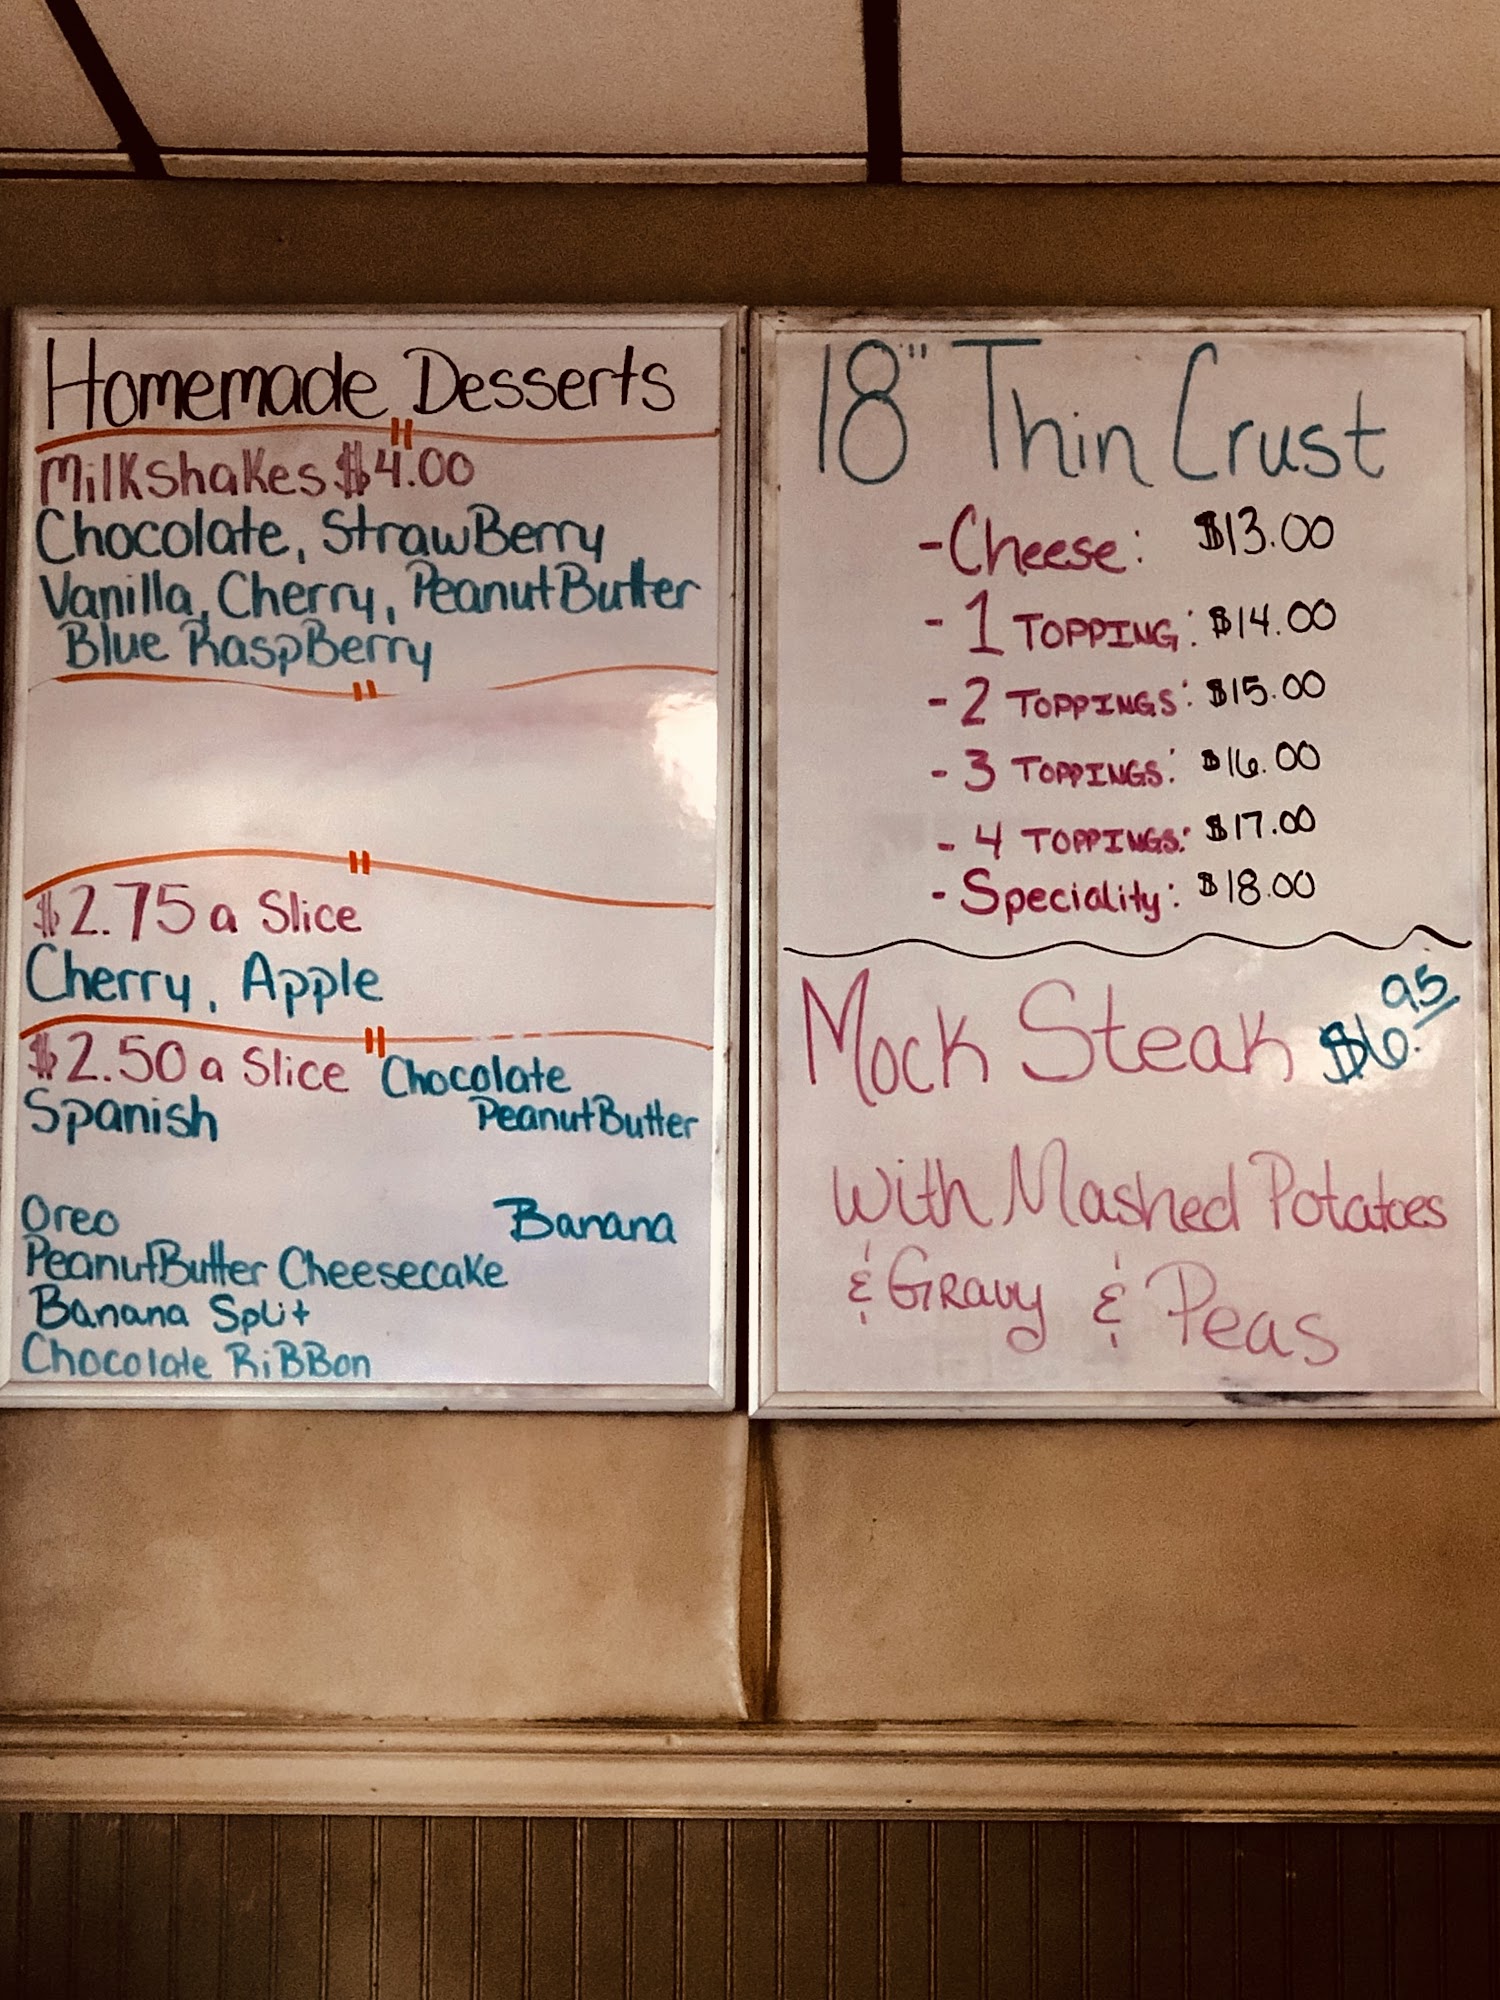 Homemade Desserts
Milkshakes $4.00
Chocolate, StrawBerry
Vanilla, Cherry, PeanutButter
Blue RaspBerry
$2.75 a Slice
Cherry, Apple
$2.50 a Slice Chocolate
Spanish PeanutButter
Oreo Banana
PeanutButter Cheesecake
Banana Split
Chocolate RiBBon
18" Thin Crust
-Cheese: $13.00
-1 TOPPING: $14.00
-2 TOPPINGS: $15.00
-3 TOPPINGS: $16.00
-4 TOPPINGS: $17.00
-Speciality: $18.00
Mock Steak $6.95
with Mashed Potatoes
& Gravy & Peas